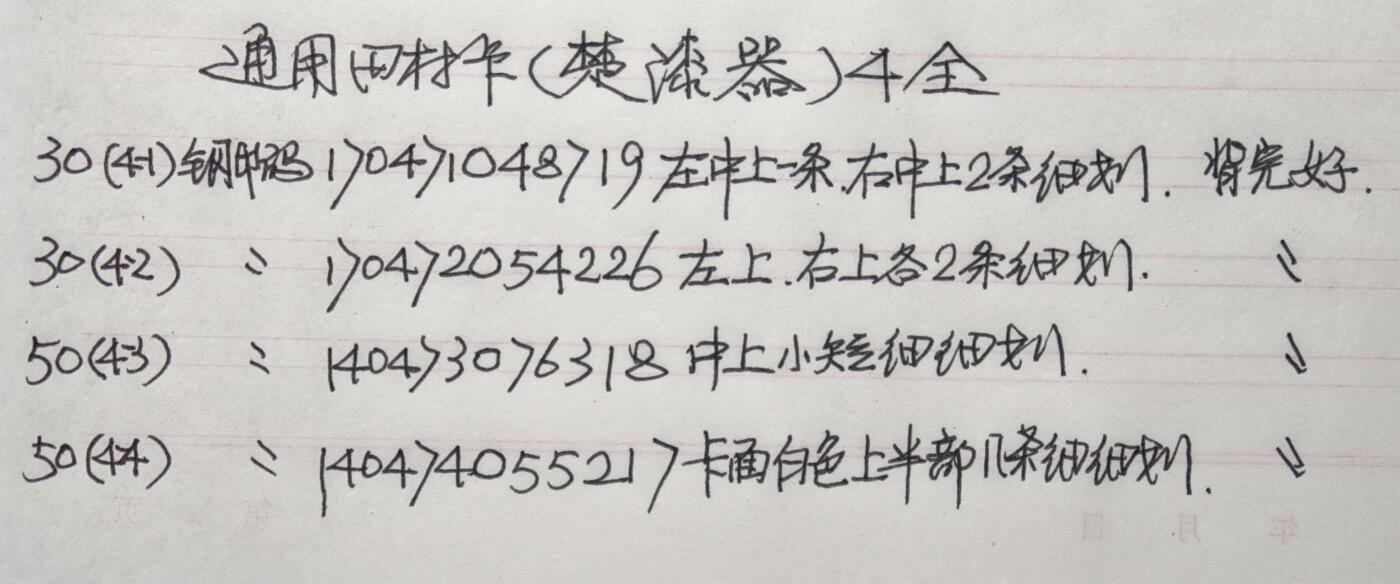 通用田村卡(楚漆器)4全
30(4-1)钢印码 170471048719 左中上一条.右中上2条细划. 背完好.
30(4-2) 〃 170472054226 左上.右上各2条细划. 〃
50(4-3) 〃 140473076318 中上小短细细划. 〃
50(4-4) 〃 140474055217 卡面白色上半部几条细细划. 〃
第 页 年 月 日